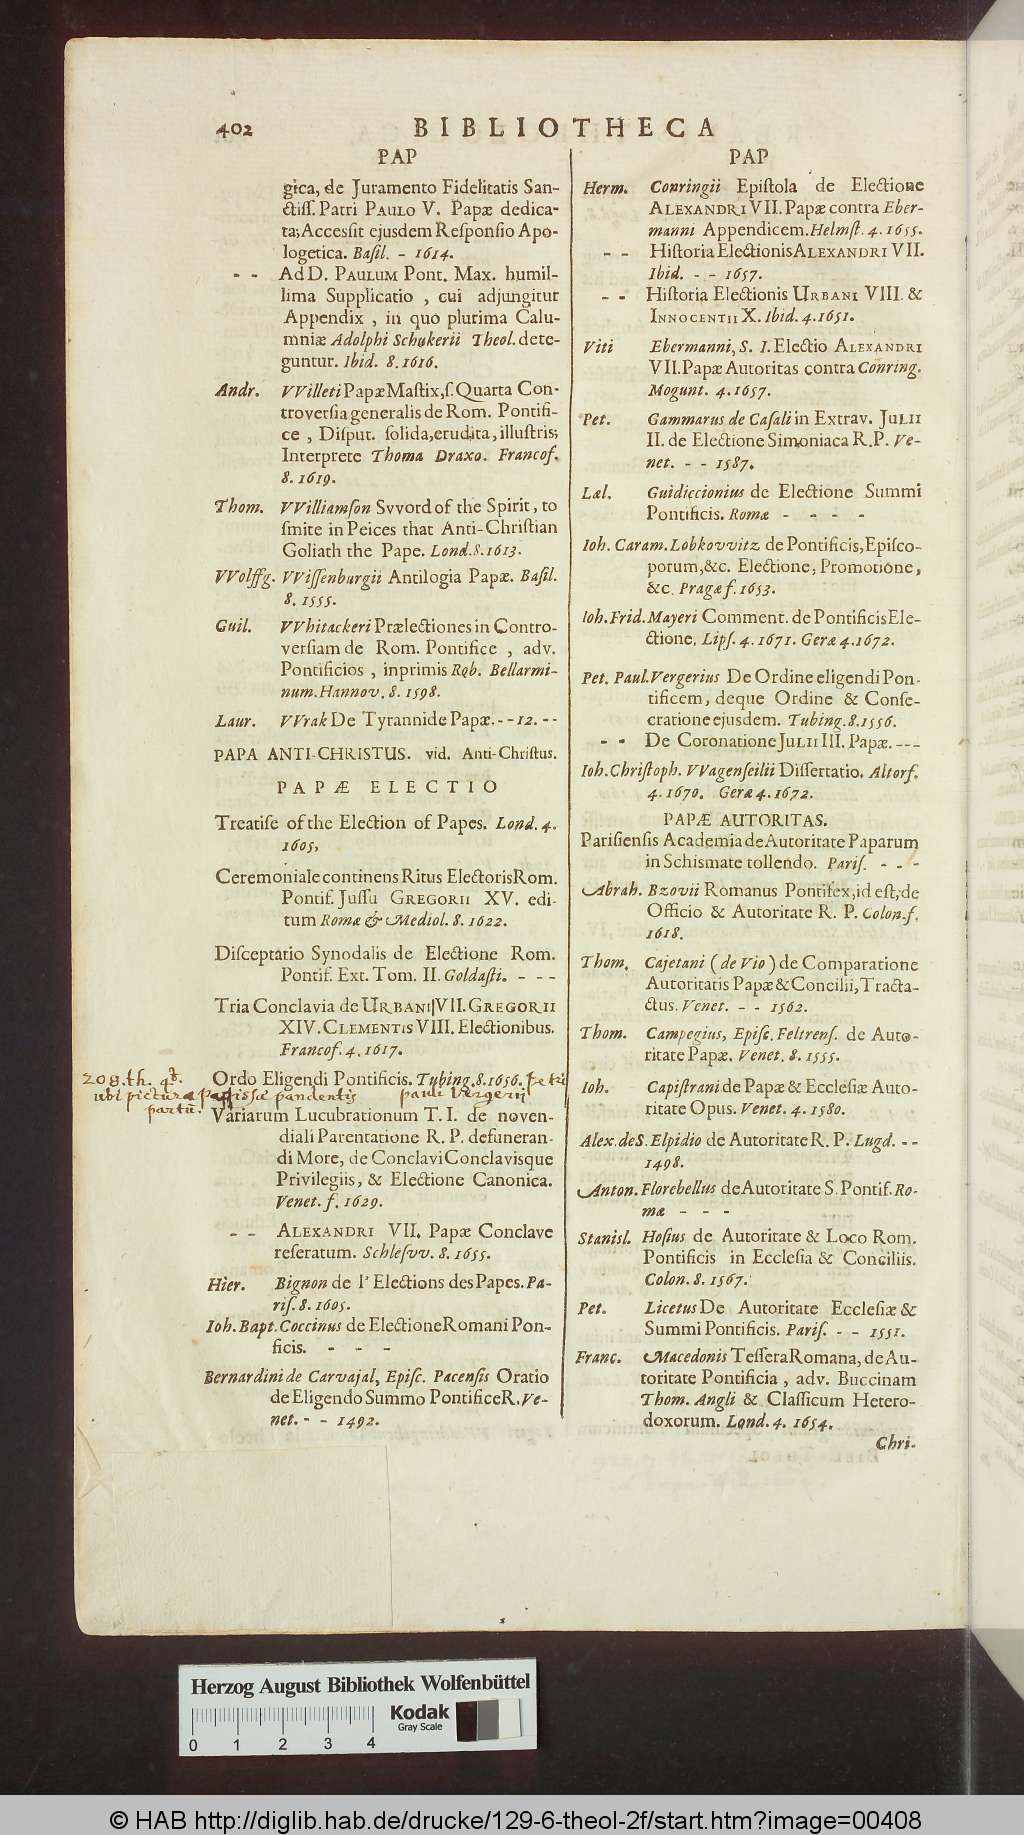 402
BIBLIOTHECA
PAP
gica, de Juramento Fidelitatis San-
ctiſſ. Patri PAULO V. Papæ dedica-
ta; Acceſſit ejusdem Reſponſio Apo-
logetica. Baſil. - 1614.
- - Ad D. PAULUM Pont. Max. humil-
lima Supplicatio, cui adjungitur
Appendix, in quo plurima Calu-
mniæ Adolphi Schukerii Theol. dete-
guntur. Ibid. 8. 1616.
Andr. VVilleti Papæ Maſtix, ſ. Quarta Con-
troverſia generalis de Rom. Pontifi-
ce, Diſput. ſolida, erudita, illuſtris;
Interprete Thoma Draxo. Francof.
8. 1619.
Thom. VVilliamſon Svvord of the Spirit, to
ſmite in Peices that Anti-Chriſtian
Goliath the Pape. Lond. 8. 1613.
VVolffg. VViſſenburgii Antilogia Papæ. Baſil.
8. 1555.
Guil. VVhitackeri Prælectiones in Contro-
verſiam de Rom. Pontifice, adv.
Pontificios, inprimis Rob. Bellarmi-
num. Hannov. 8. 1598.
Laur. VVrak De Tyrannide Papæ. - - 12. - -
PAPA ANTI-CHRISTUS. vid. Anti-Chriſtus.
PAPÆ ELECTIO
Treatiſe of the Election of Papes. Lond. 4.
1605,
Ceremoniale continens Ritus Electoris Rom.
Pontif. Juſſu GREGORII XV. edi-
tum Romæ & Mediol. 8. 1622.
Diſceptatio Synodalis de Electione Rom.
Pontif. Ext. Tom. II. Goldaſti. - - -
Tria Conclavia de URBANI VII. GREGORII
XIV. CLEMENTIS VIII. Electionibus.
Francof. 4. 1617.
208. th. 4t. Ordo Eligendi Pontificis. Tubing. 8. 1656. Petri
ubi pictura Papissæ pandentis pauli Vergerij
partū.
Variarum Lucubrationum T. I. de noven-
diali Parentatione R. P. defuneran-
di More, de Conclavi Conclavisque
Privilegiis, & Electione Canonica.
Venet. f. 1629.
- - ALEXANDRI VII. Papæ Conclave
reſeratum. Schleſvv. 8. 1655.
Hier. Bignon de l' Elections des Papes. Pa-
riſ. 8. 1605.
Ioh. Bapt. Coccinus de Electione Romani Pon-
ficis. - - -
Bernardini de Carvajal, Epiſc. Pacenſis Oratio
de Eligendo Summo Pontifice R. Ve-
net. - - 1492.
PAP
Herm. Conringii Epiſtola de Electione
ALEXANDRI VII. Papæ contra Eber-
manni Appendicem. Helmſt. 4. 1655.
- - Hiſtoria Electionis ALEXANDRI VII.
Ibid. - - 1657.
- - Hiſtoria Electionis URBANI VIII. &
INNOCENTII X. Ibid. 4. 1651.
Viti Ebermanni, S. I. Electio ALEXANDRI
VII. Papæ Autoritas contra Conring.
Mogunt. 4. 1657.
Pet. Gammarus de Caſali in Extrav. JULII
II. de Electione Simoniaca R. P. Ve-
net. - - 1587.
Læl. Guidiccionius de Electione Summi
Pontificis. Romæ - - - -
Ioh. Caram. Lobkovvitz de Pontificis, Epiſco-
porum, &c. Electione, Promotione,
&c. Pragæ f. 1653.
Ioh. Frid. Mayeri Comment. de Pontificis Ele-
ctione. Lipſ. 4. 1671. Geræ 4. 1672.
Pet. Paul. Vergerius De Ordine eligendi Pon-
tificem, deque Ordine & Conſe-
cratione ejusdem. Tubing. 8. 1556.
- - De Coronatione JULII III. Papæ. - - -
Ioh. Chriſtoph. VVagenſeilii Diſſertatio. Altorf.
4. 1670. Geræ 4. 1672.
PAPÆ AUTORITAS.
Pariſienſis Academia de Autoritate Paparum
in Schismate tollendo. Pariſ. - - -
Abrah. Bzovii Romanus Pontifex, id eſt, de
Officio & Autoritate R. P. Colon. f.
1618.
Thom. Cajetani (de Vio) de Comparatione
Autoritatis Papæ & Concilii, Tracta-
ctus. Venet. - - 1562.
Thom. Campegius, Epiſc. Feltrenſ. de Auto-
ritate Papæ. Venet. 8. 1555.
Ioh. Capiſtrani de Papæ & Eccleſiæ Auto-
ritate Opus. Venet. 4. 1580.
Alex. de S. Elpidio de Autoritate R. P. Lugd. - -
1498.
Anton. Florebellus de Autoritate S. Pontif. Ro-
mæ - - -
Stanisl. Hoſius de Autoritate & Loco Rom.
Pontificis in Eccleſia & Conciliis.
Colon. 8. 1567.
Pet. Licetus De Autoritate Eccleſiæ &
Summi Pontificis. Pariſ. - - 1551.
Franc. Macedonis Teſſera Romana, de Au-
toritate Pontificia, adv. Buccinam
Thom. Angli & Claſſicum Hetero-
doxorum. Lond. 4. 1654.
Chri-
Herzog August Bibliothek Wolfenbüttel
Kodak
Gray Scale
0 1 2 3 4
© HAB http://diglib.hab.de/drucke/129-6-theol-2f/start.htm?image=00408